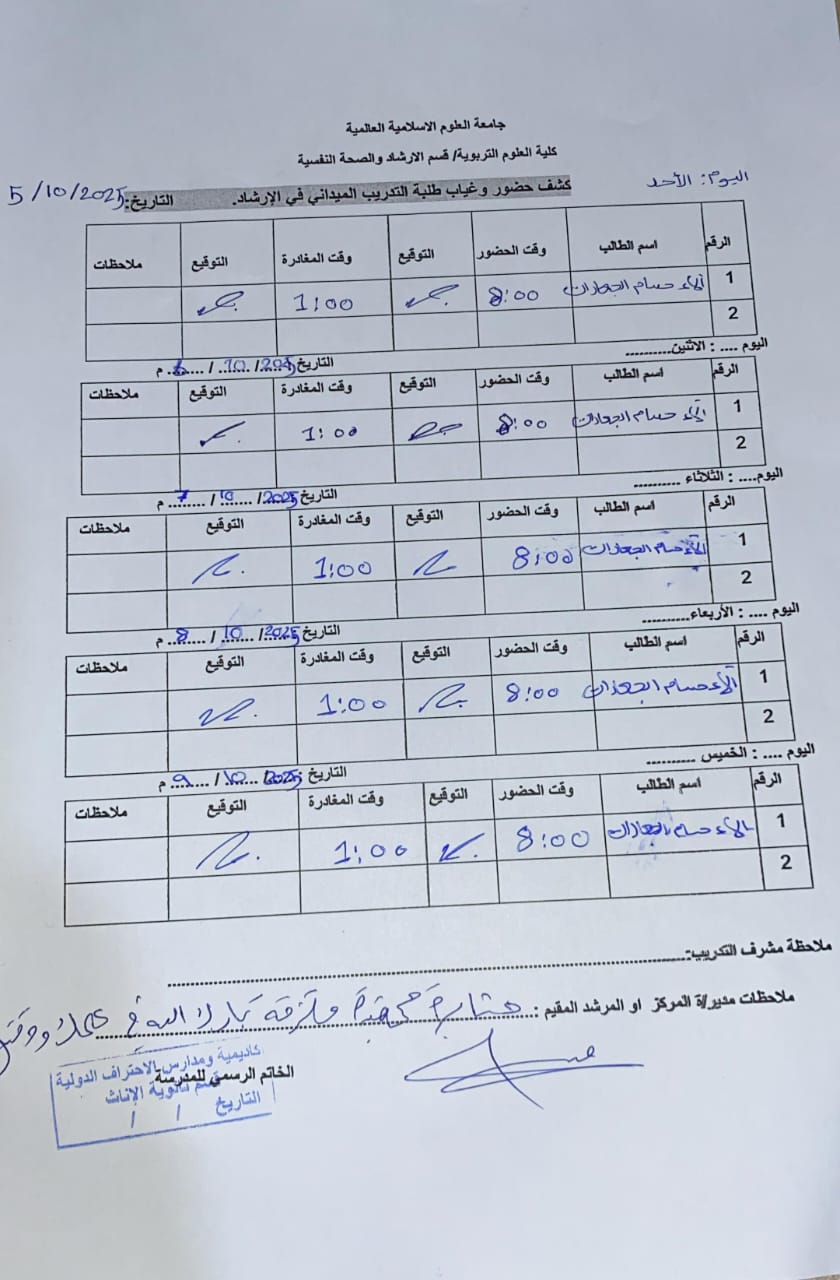 جامعة العلوم الاسلامية العالمية
كلية العلوم التربوية/ قسم الارشاد والصحة النفسية
اليوم: الأحد
كشف حضور وغياب طلبة التدريب الميداني في الإرشاد. التاريخ: 5/10/2025
الرقم اسم الطالب وقت الحضور التوقيع وقت المغادرة التوقيع ملاحظات
1 آلاء حسام 8:00 1:00
2
اليوم .... : الاثنين........... التاريخ 6 / 10 / م
الرقم اسم الطالب وقت الحضور التوقيع وقت المغادرة التوقيع ملاحظات
1 آلاء حسام 8:00 1:00
2
اليوم.... : الثلاثاء ........... التاريخ 7 / 10 / 2025 م
الرقم اسم الطالب وقت الحضور التوقيع وقت المغادرة التوقيع ملاحظات
1 آلاء حسام 8:00 1:00
2
اليوم .... : الأربعاء........... التاريخ 8 / 10 / 2025 م
الرقم اسم الطالب وقت الحضور التوقيع وقت المغادرة التوقيع ملاحظات
1 آلاء حسام 8:00 1:00
2
اليوم .... : الخميس ........... التاريخ 9 / 10 / 2025 م
الرقم اسم الطالب وقت الحضور التوقيع وقت المغادرة التوقيع ملاحظات
1 آلاء حسام 8:00 1:00
2
ملاحظة مشرف التدريب:-
ملاحظات مدير/ة المركز او المرشد المقيم : مثابرة مجتهدة ملتزمة بارك الله في عملك
الخاتم الرسمي للمدرسة
كاديمية ومدارس الاحتراف الدولية
قسم ثانوية الإناث
التاريخ / /